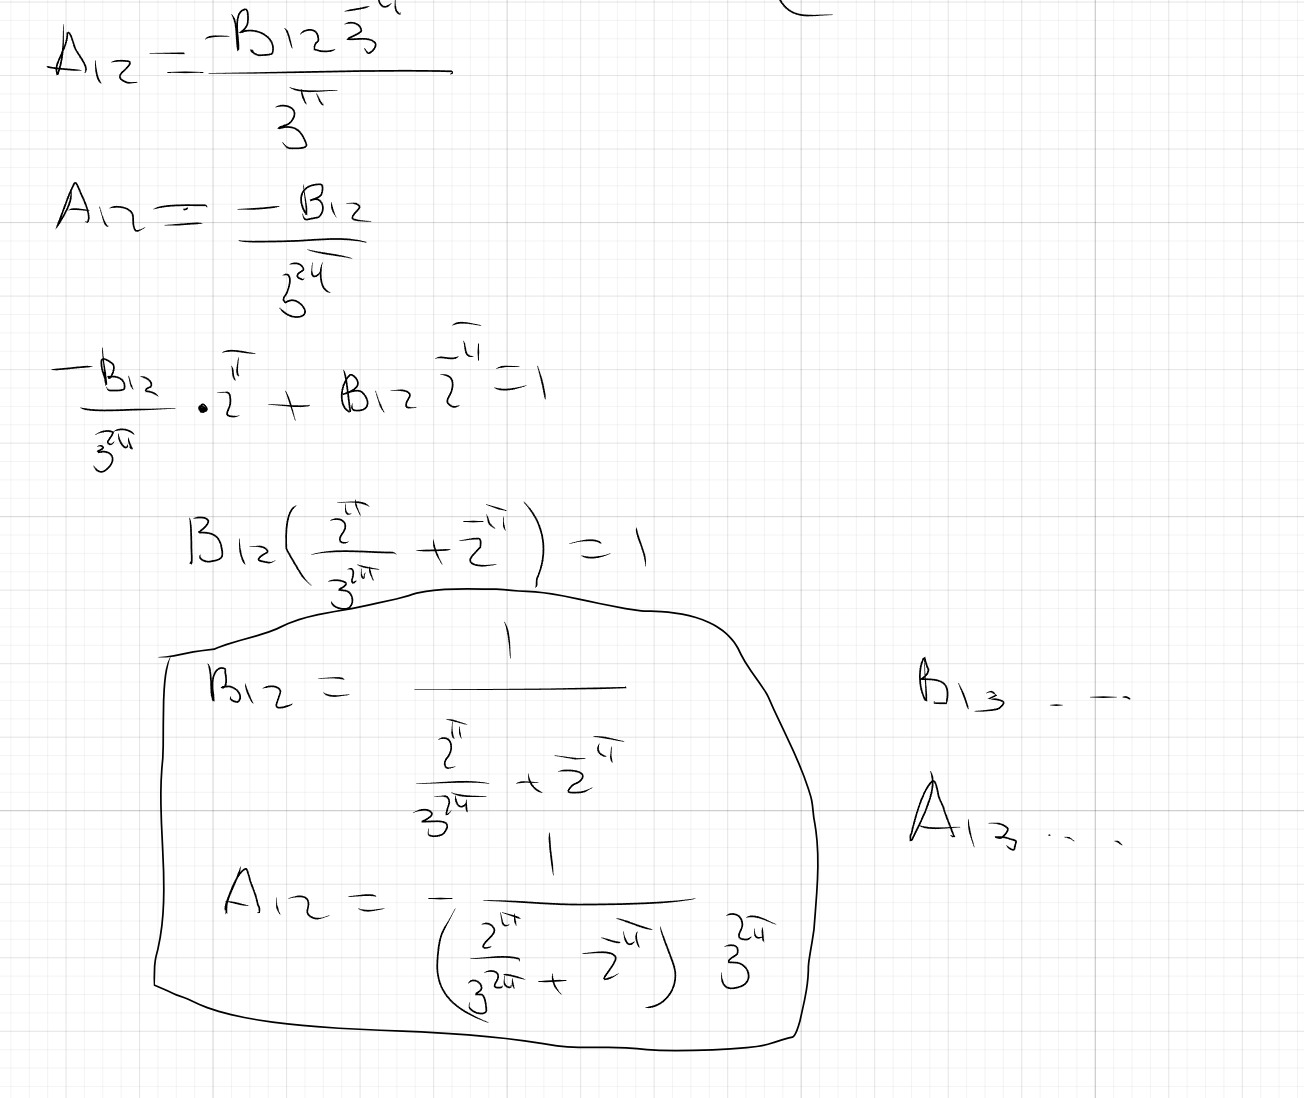 A₁₂ = -B₁₂ 3^-π / 3^π
A₁₂ = -B₁₂ / 3^2π
-B₁₂ / 3^2π · 2^π + B₁₂ 2^-π = 1
B₁₂ ( 2^π / 3^2π + 2^-π ) = 1
B₁₂ = 1 / ( 2^π / 3^2π + 2^-π )
A₁₂ = - 1 / ( ( 2^π / 3^2π + 2^-π ) 3^2π )
B₁₃ . -·
A₁₃ ·· ·.